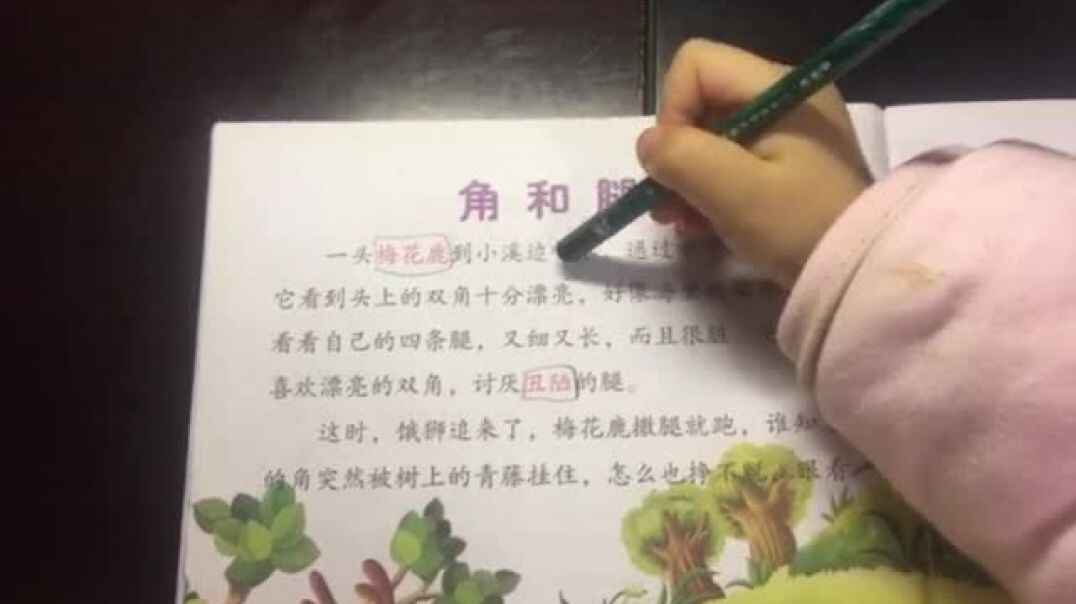 角和腿
一头梅花鹿到小溪边 通过
它看到头上的双角十分漂亮，好像
看看自己的四条腿，又细又长，而且很脏
喜欢漂亮的双角，讨厌丑陋的腿。
这时，饿狮追来了，梅花鹿撒腿就跑，谁知
的角突然被树上的青藤挂住，怎么也挣不脱。眼看